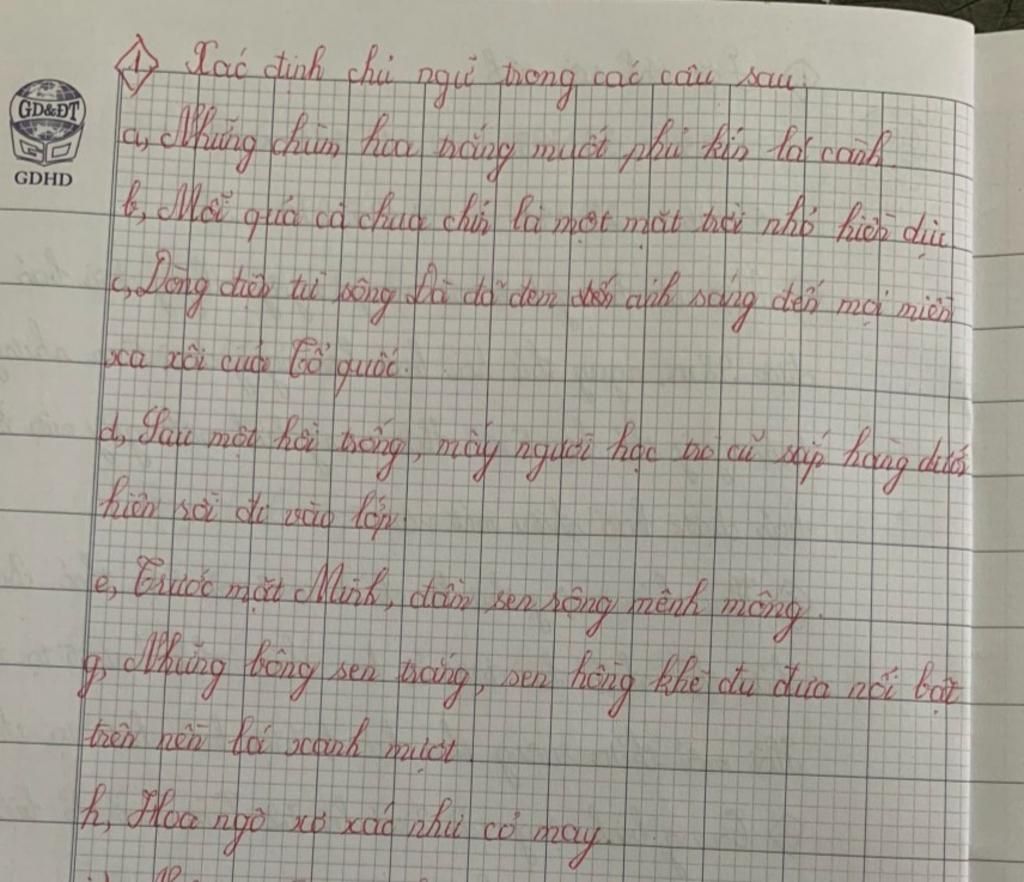 1 Xác định chủ ngữ trong các câu sau:
GD&ĐT
GDHD
a, Những chùm hoa trắng muốt phủ kín lá cành
b, Mỗi quả cà chua chín là một mặt trời nhỏ hiền dịu
c, Dòng điện từ sông Đà đã đem đến ánh sáng đến mọi miền
xa xôi của Tổ quốc.
d, Sau một hồi trống, mấy người học trò cũ sắp hàng dưới
hiên rồi đi vào lớp
e, Trước mặt Minh, đầm sen rộng mênh mông.
g, Những bông sen trắng, sen hồng khẽ đu đưa nổi bật
trên nền lá xanh mượt
h, Hoa ngô xơ xác như cỏ may.